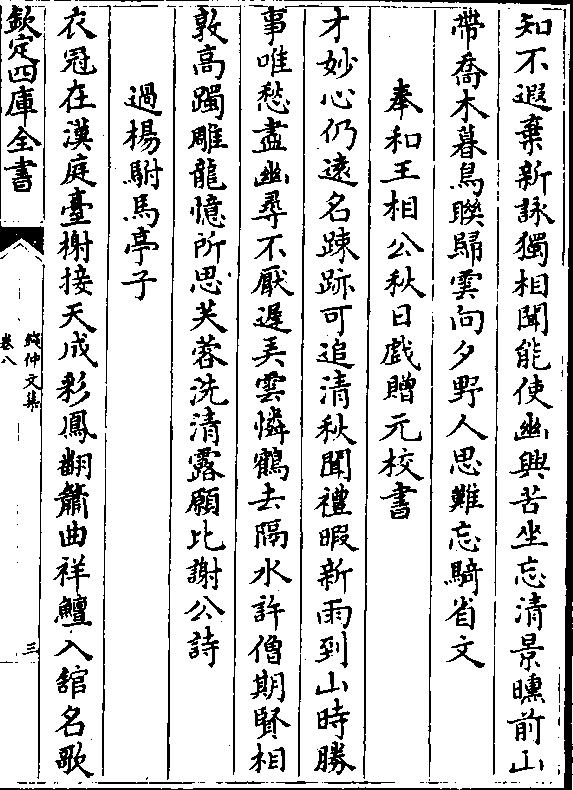 知不遐棄新詠獨相聞能使幽興苦坐忘清景曛前山
帶喬木暮鳥聯歸雲向夕野人思難忘騎省文
奉和王相公秋日戲贈元校書
才妙心仍遠名踈跡可追清秋聞禮暇新雨到山時勝
事唯愁盡幽尋不厭遲弄雲憐鶴去隔水許僧期賢相
敦高躅雕龍憶所思芙蓉洗清露願比謝公詩
過楊駙馬亭子
衣冠在漢庭臺榭接天成彩鳳翻簫曲祥鱣入舘名歌
欽定四庫全書
錢仲文集
卷八
三